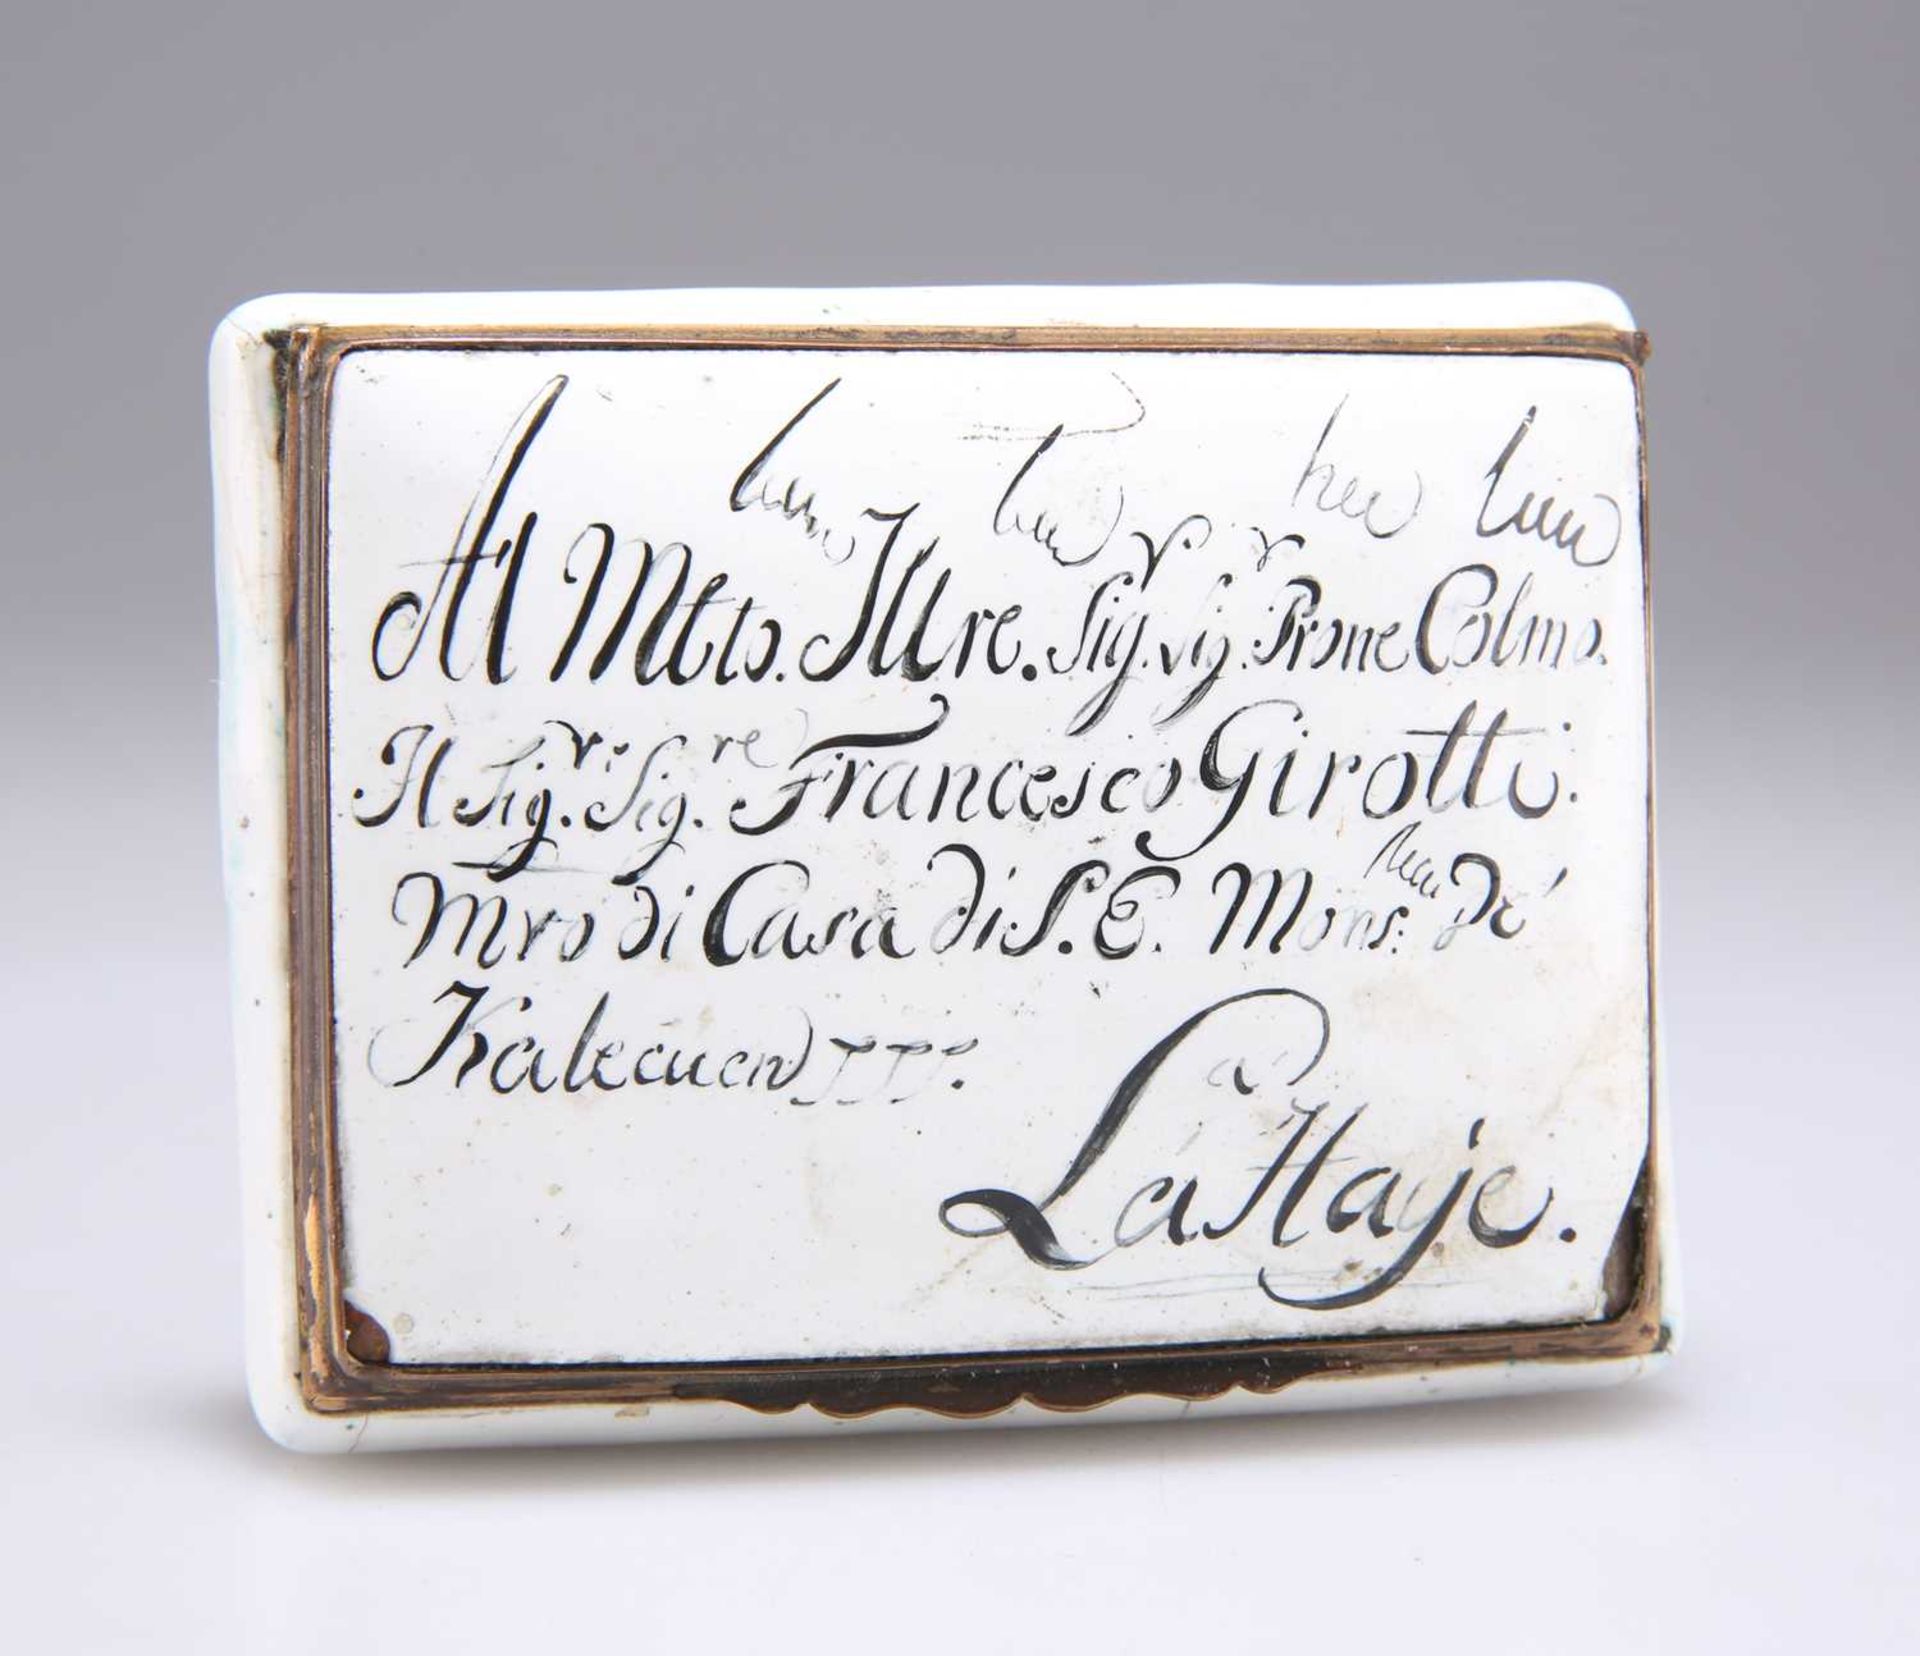 Al Mtto. Illre. Sig.r Sig.r Prone Colmo.
Il Sig.r Sig.re Francesco Girotti.
Mro di Casa di S. E. Mons. De
La Haje.